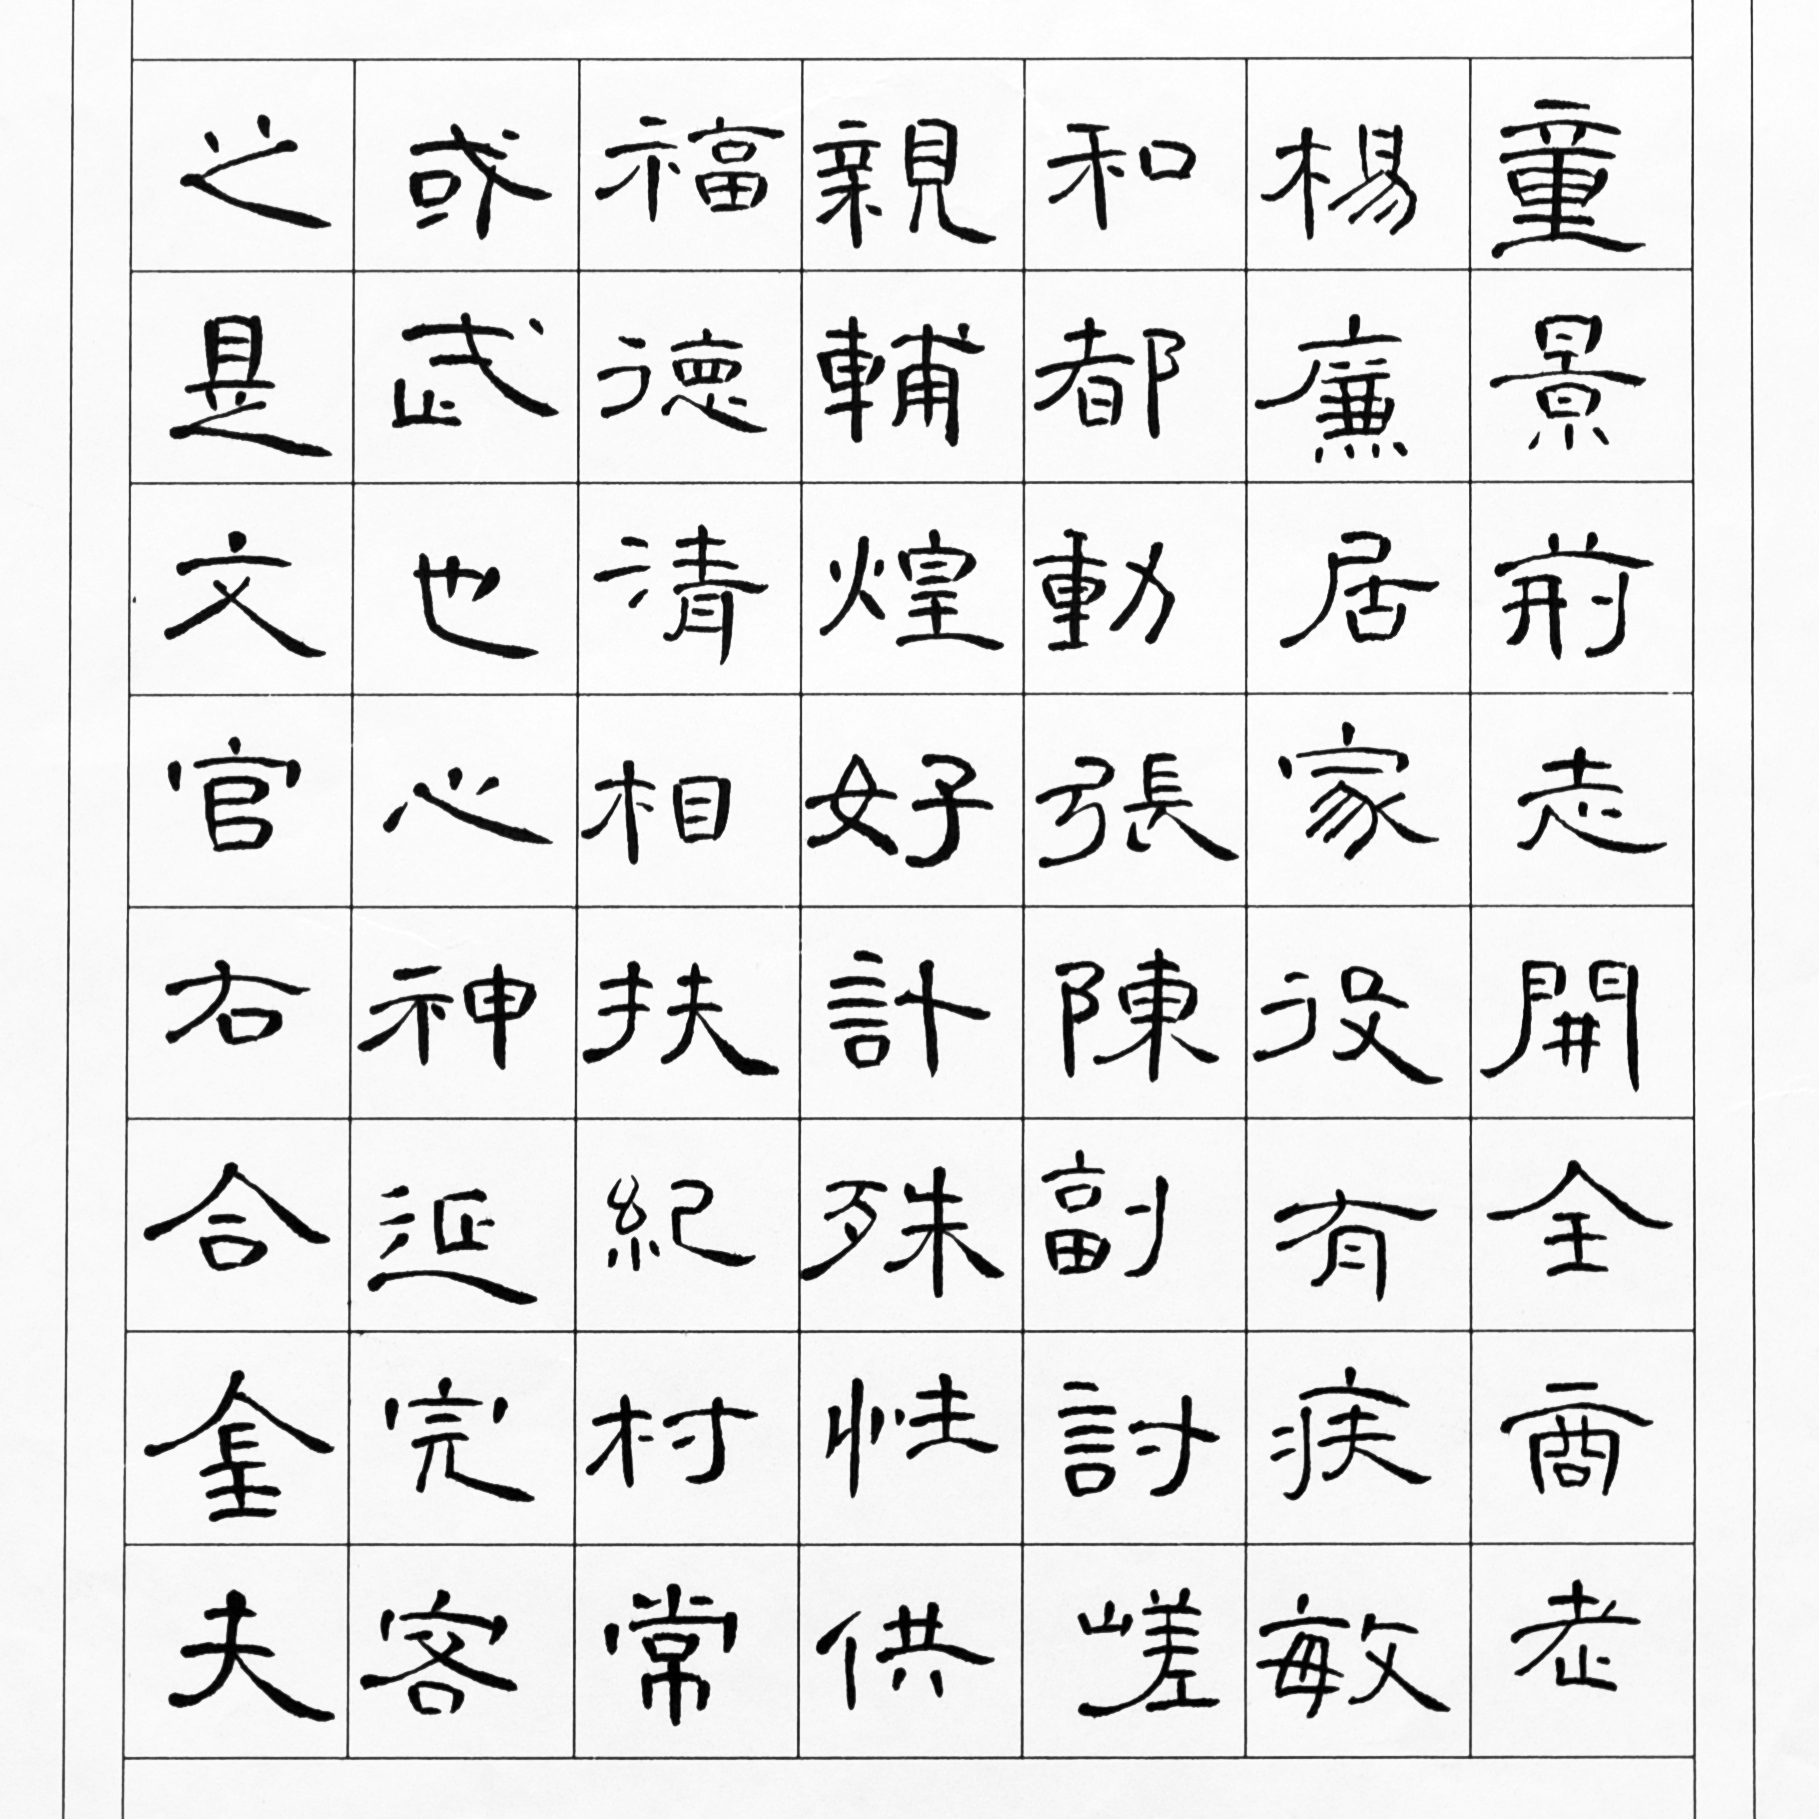 童景前志開全商老
楊廉居家役有疾敏
和都動張陳副討嵯
親輔煌好計殊性供
福德清相扶紀村常
或武也心神延完客
之是文官右合金夫